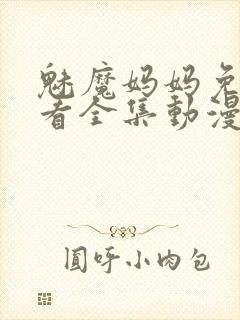 魅魔妈妈免
看全集動漫
圓呼小肉包